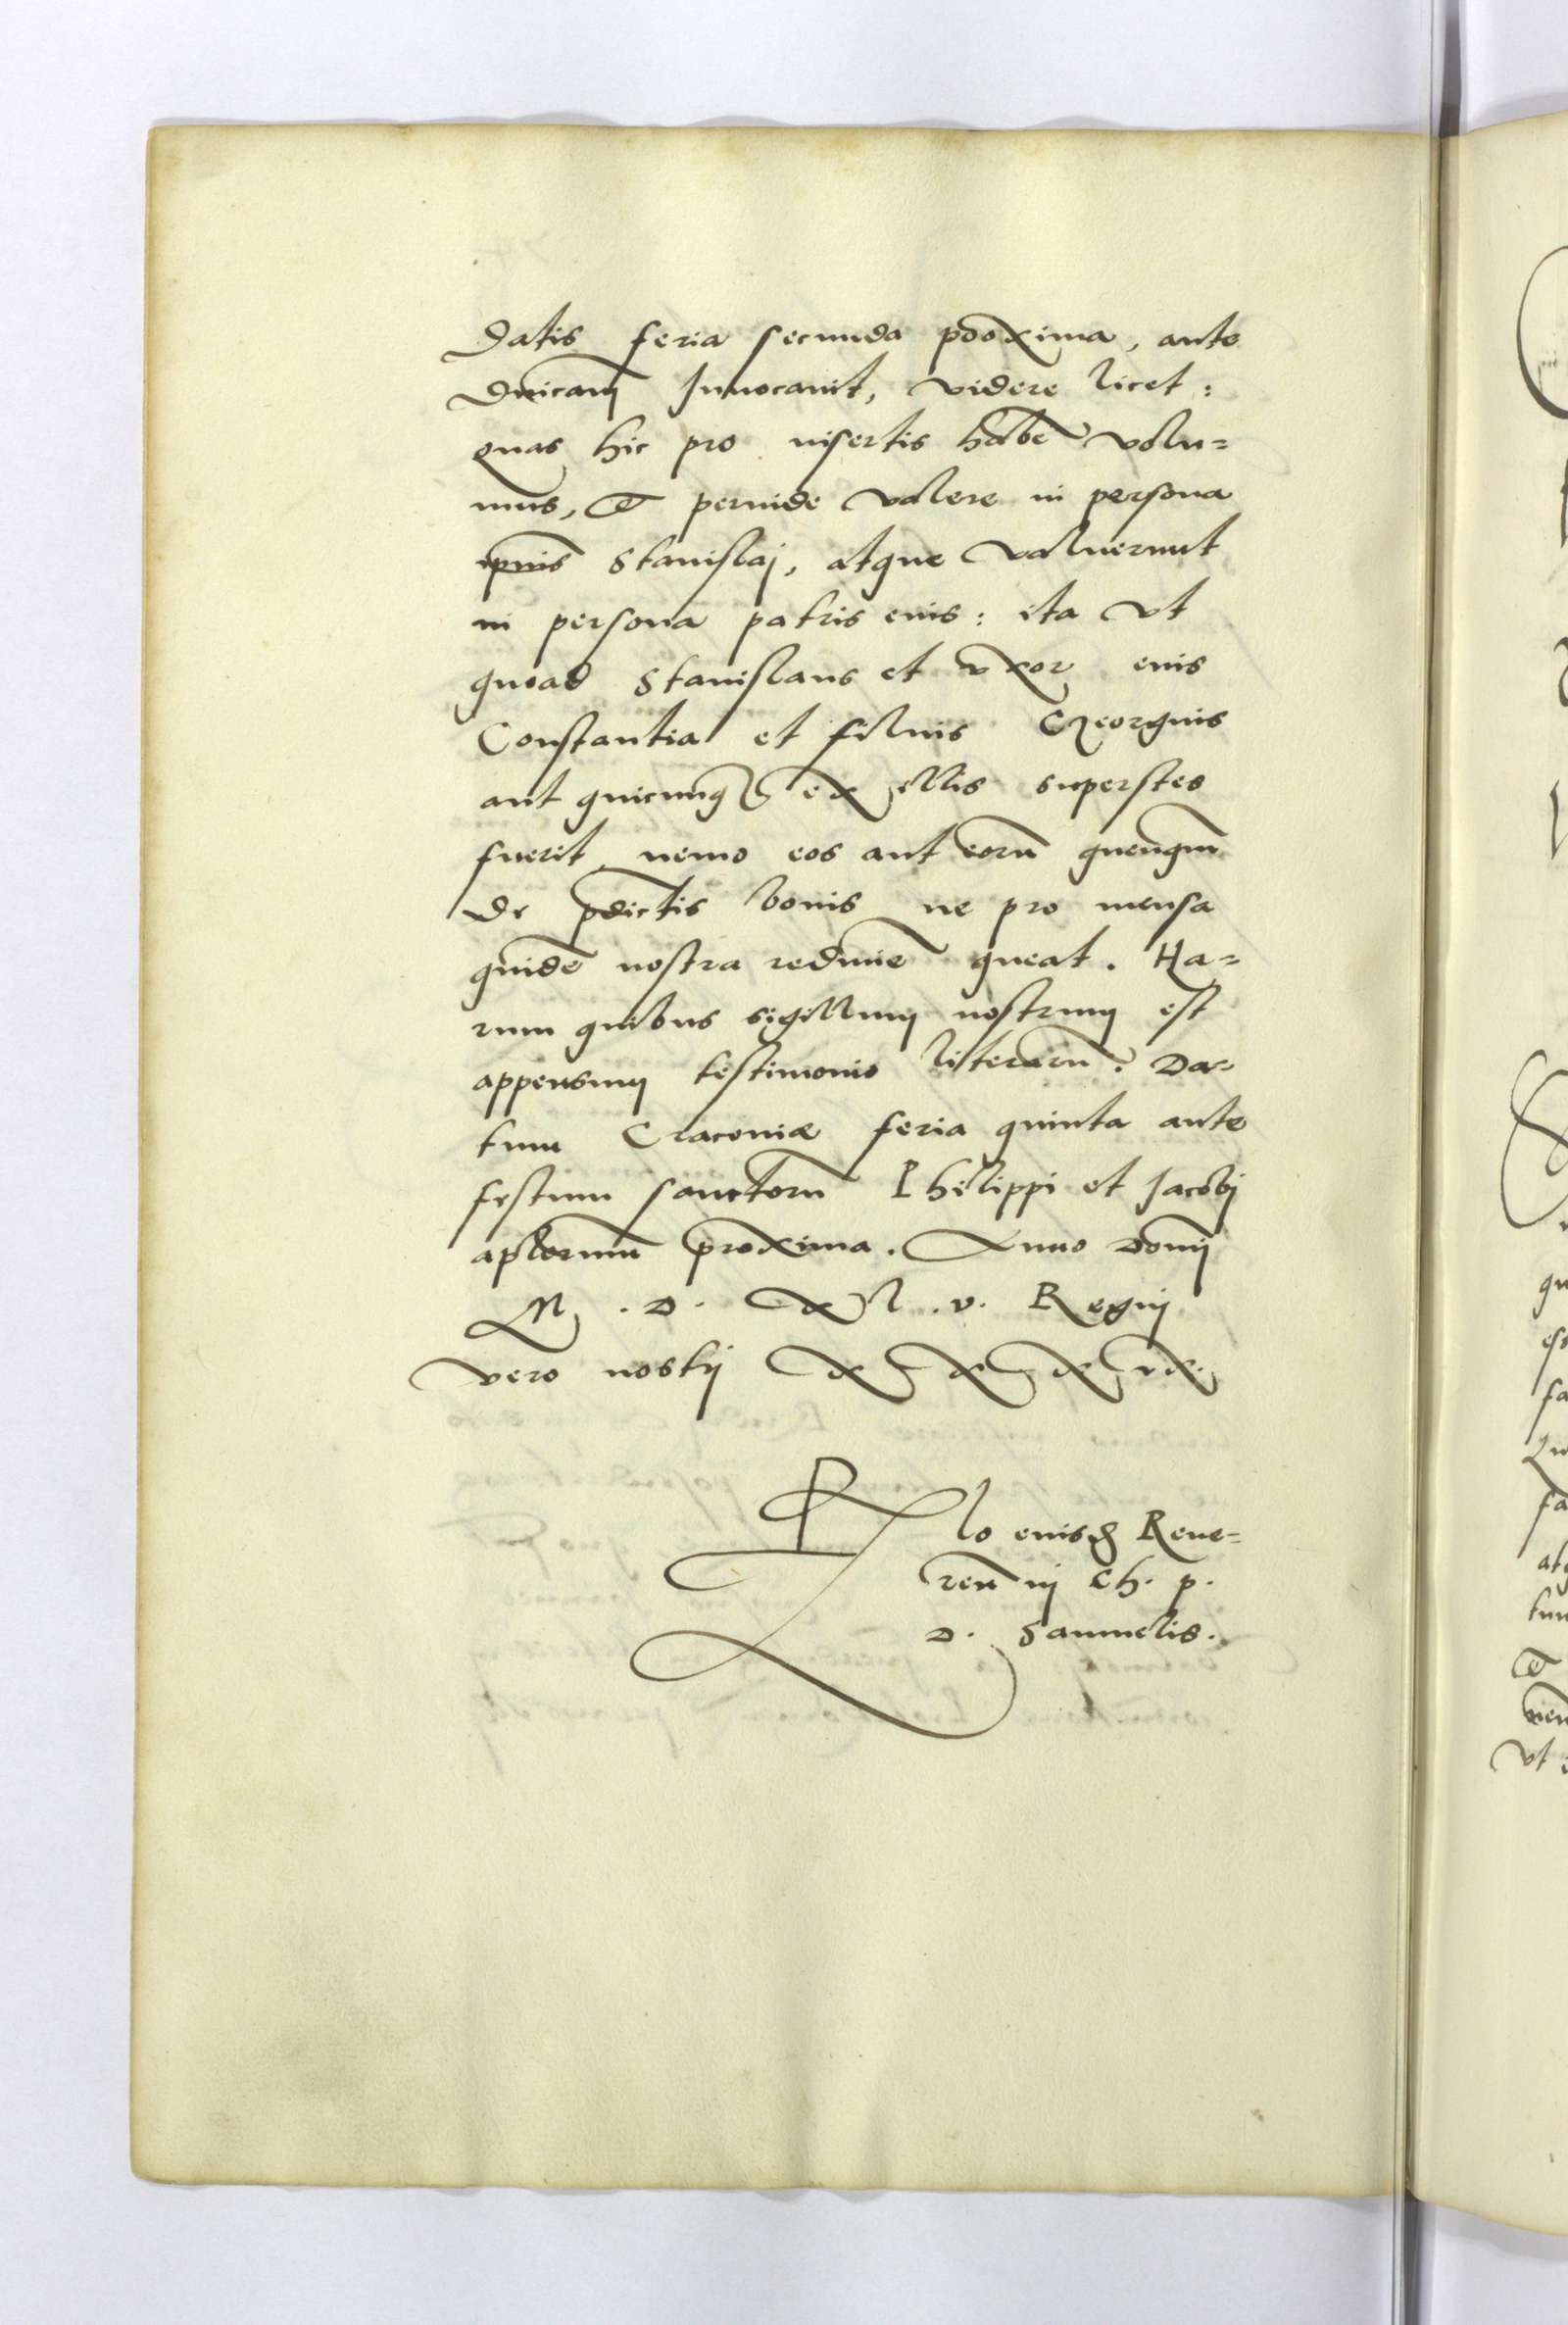 Datis feria secunda proxima, ante
Dnicam Inuocauit, videre licet:
quas hic pro insertis habe volu=
mus, et perinde valere in persona
ipsius Stanislaj, atque valuerunt
in persona patris eius: ita vt
quoad Stanislaus et vxor eius
Constantia et filius Georgius
aut quicunq ex illis superstes
fuerit nemo eos aut eoru quenqm
de pdictis bonis ne pro mensa
quide nostra redimē queat. Ha=
rum quibus sigillum nostrum est
appensum testimonio literaru. Da=
tum Cracouiæ feria quinta ante
festum sanctoru Philippi et Jacobj
aplorum proxima. Anno Domj
M . D . xl . v . Regnj
vero nostrj xxxix.
Rlo eiusd Reue=
ren in Ch. p.
D. Samuelis.